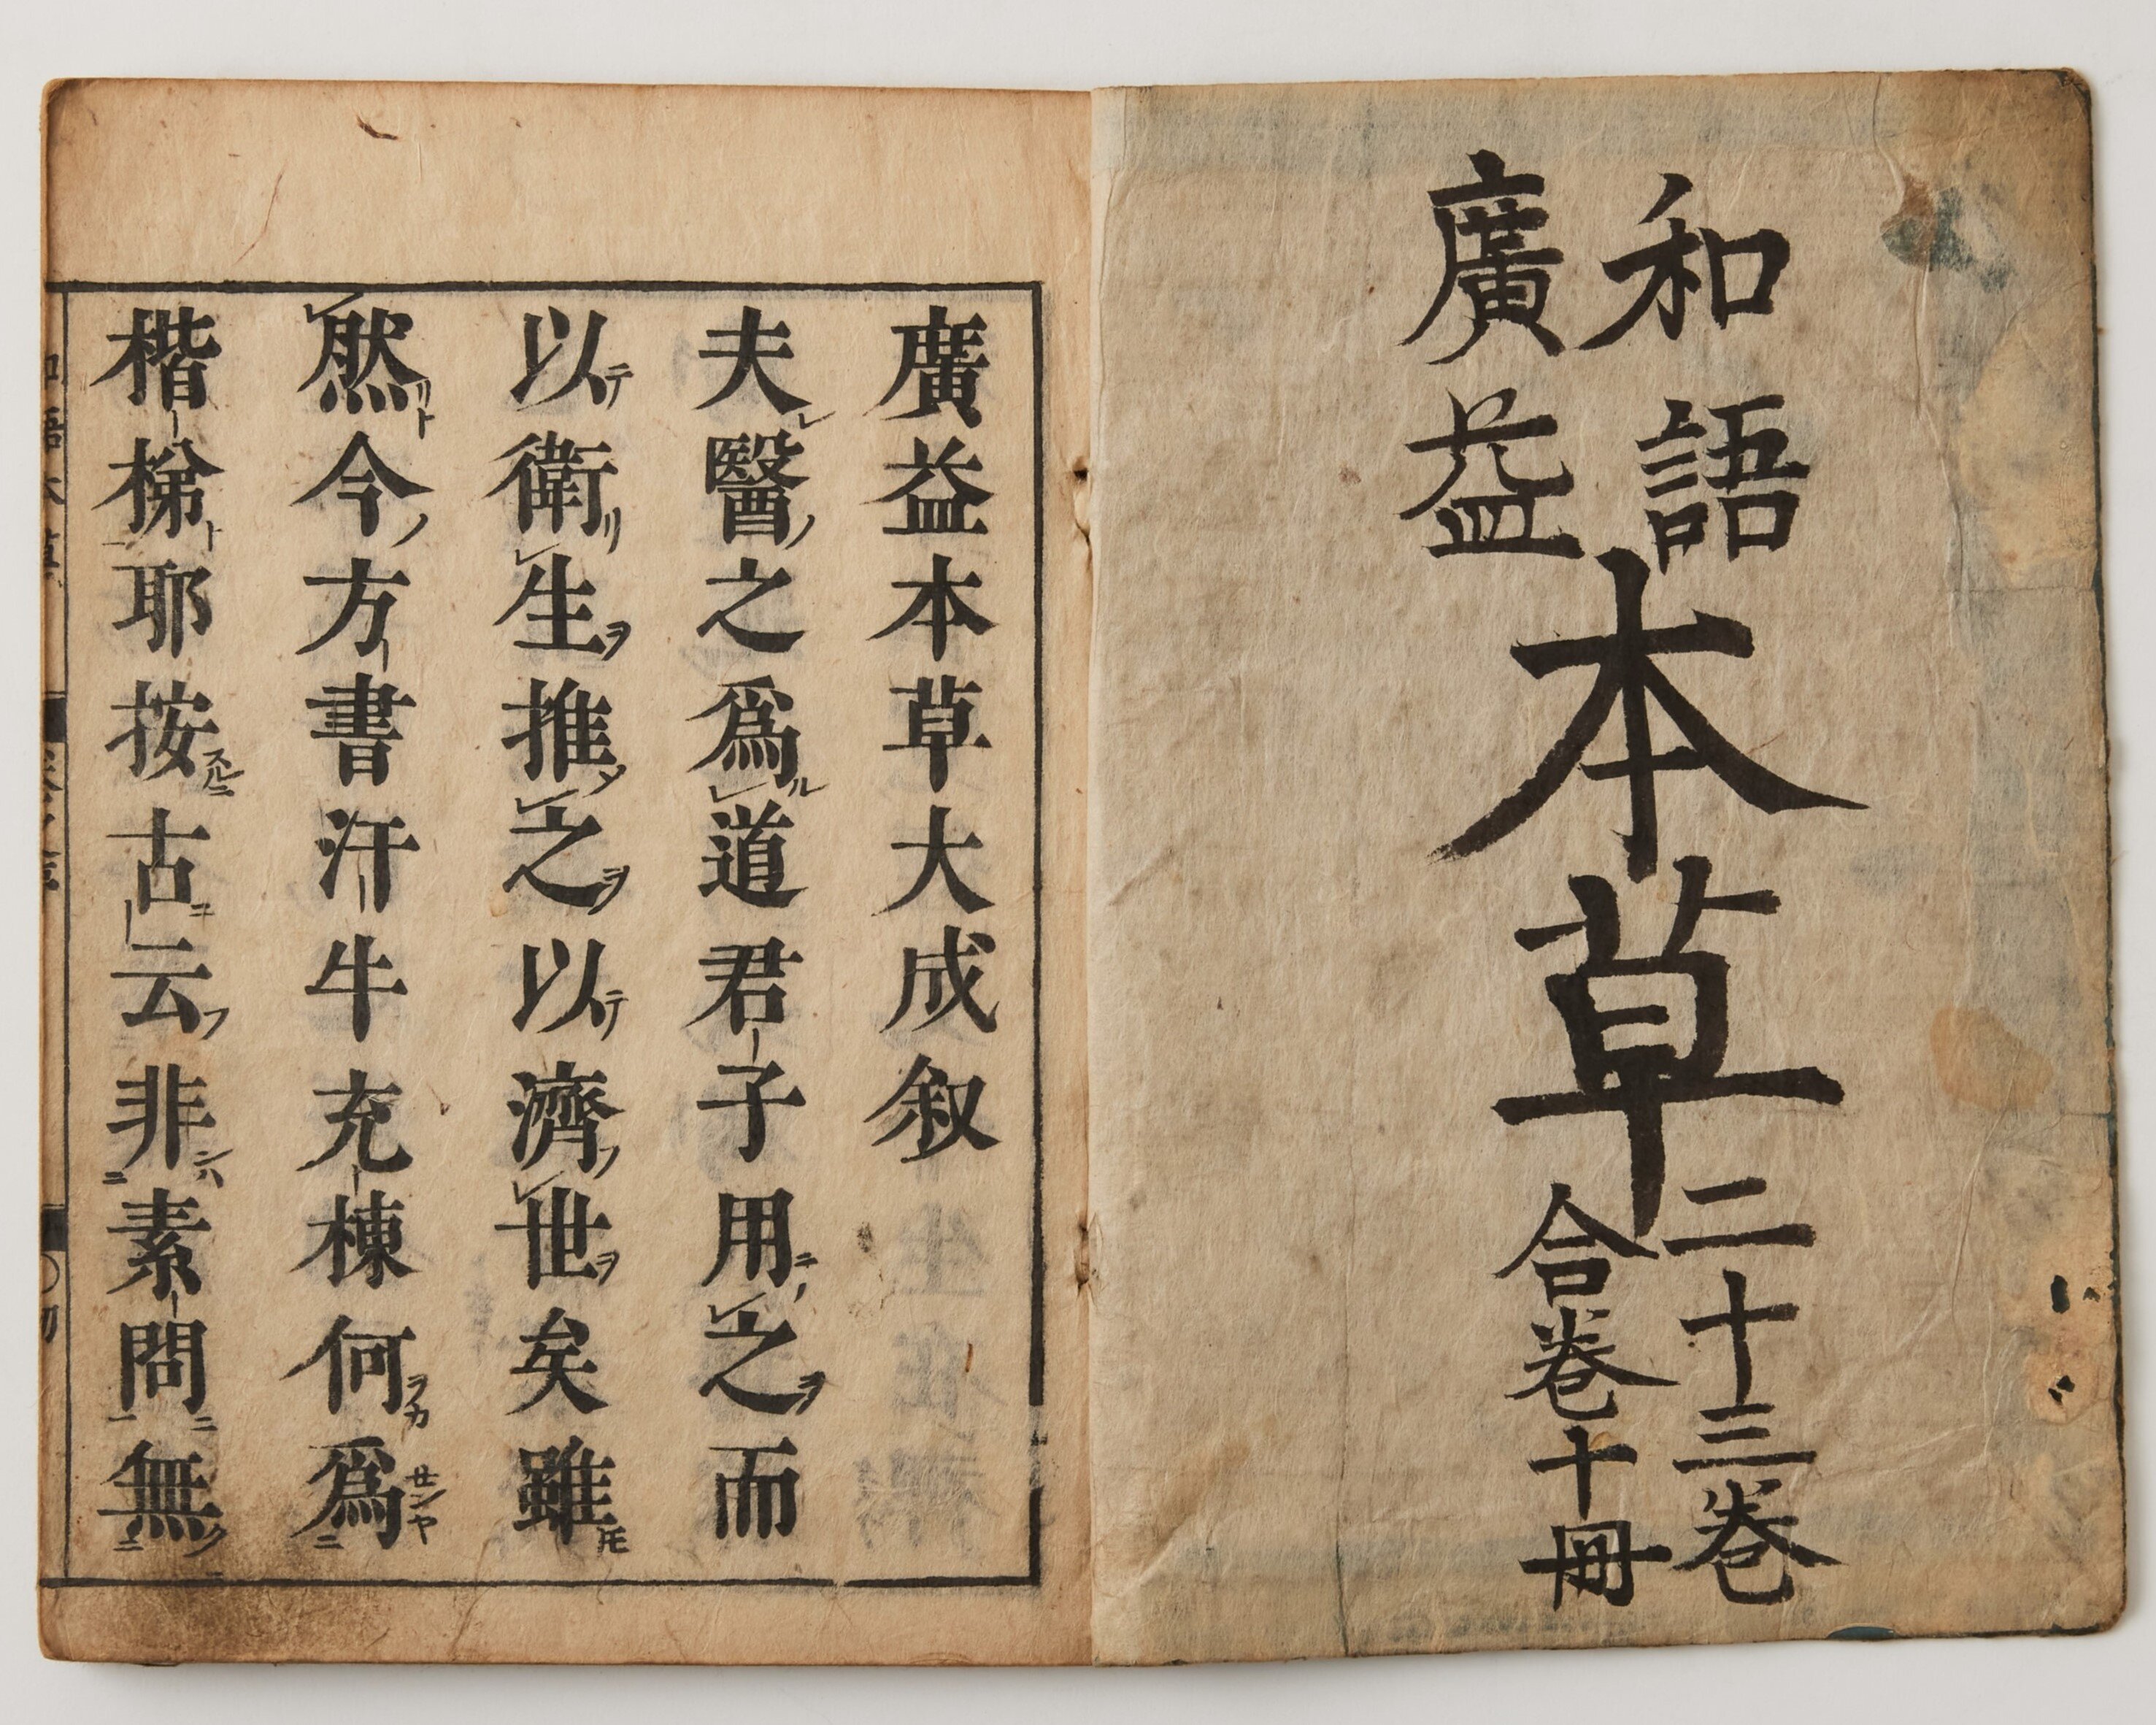 和語
廣益
本草
二十三巻
合巻十冊
廣益本草大成叙
夫醫之爲道君子用之而
以衛生推之以濟世矣雖
然今方書汗牛充棟何爲
楷梯耶按古云非素問無